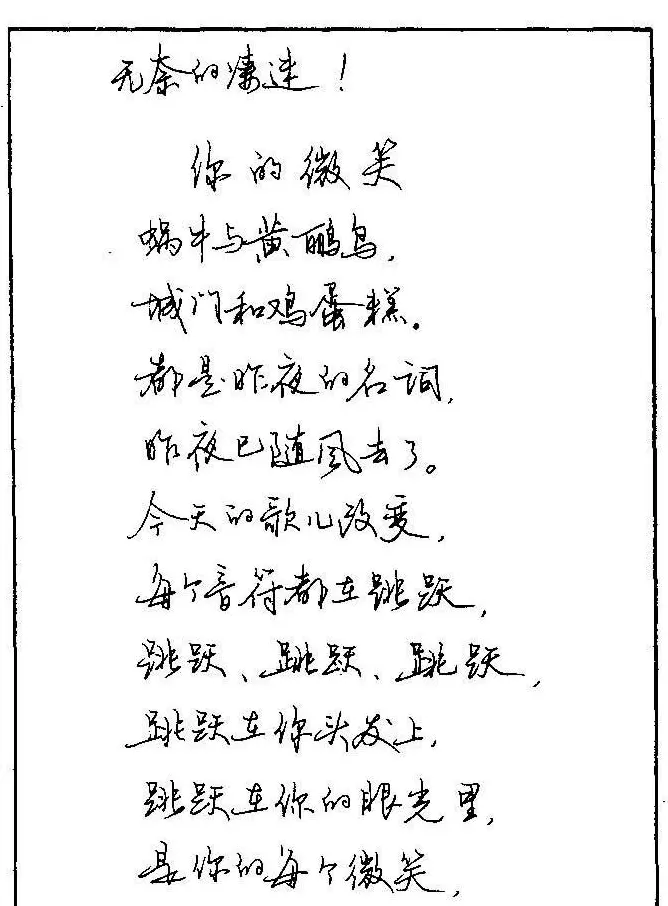 无奈的凄迷！
你的微笑
蜗牛与黄鹂鸟，
城门和鸡蛋糕。
都是昨夜的名词，
昨夜已随风去了。
今天的歌儿改变，
每个音符都在跳跃，
跳跃、跳跃、跳跃，
跳跃在你头发上，
跳跃在你的眼光里，
是你的每个微笑，